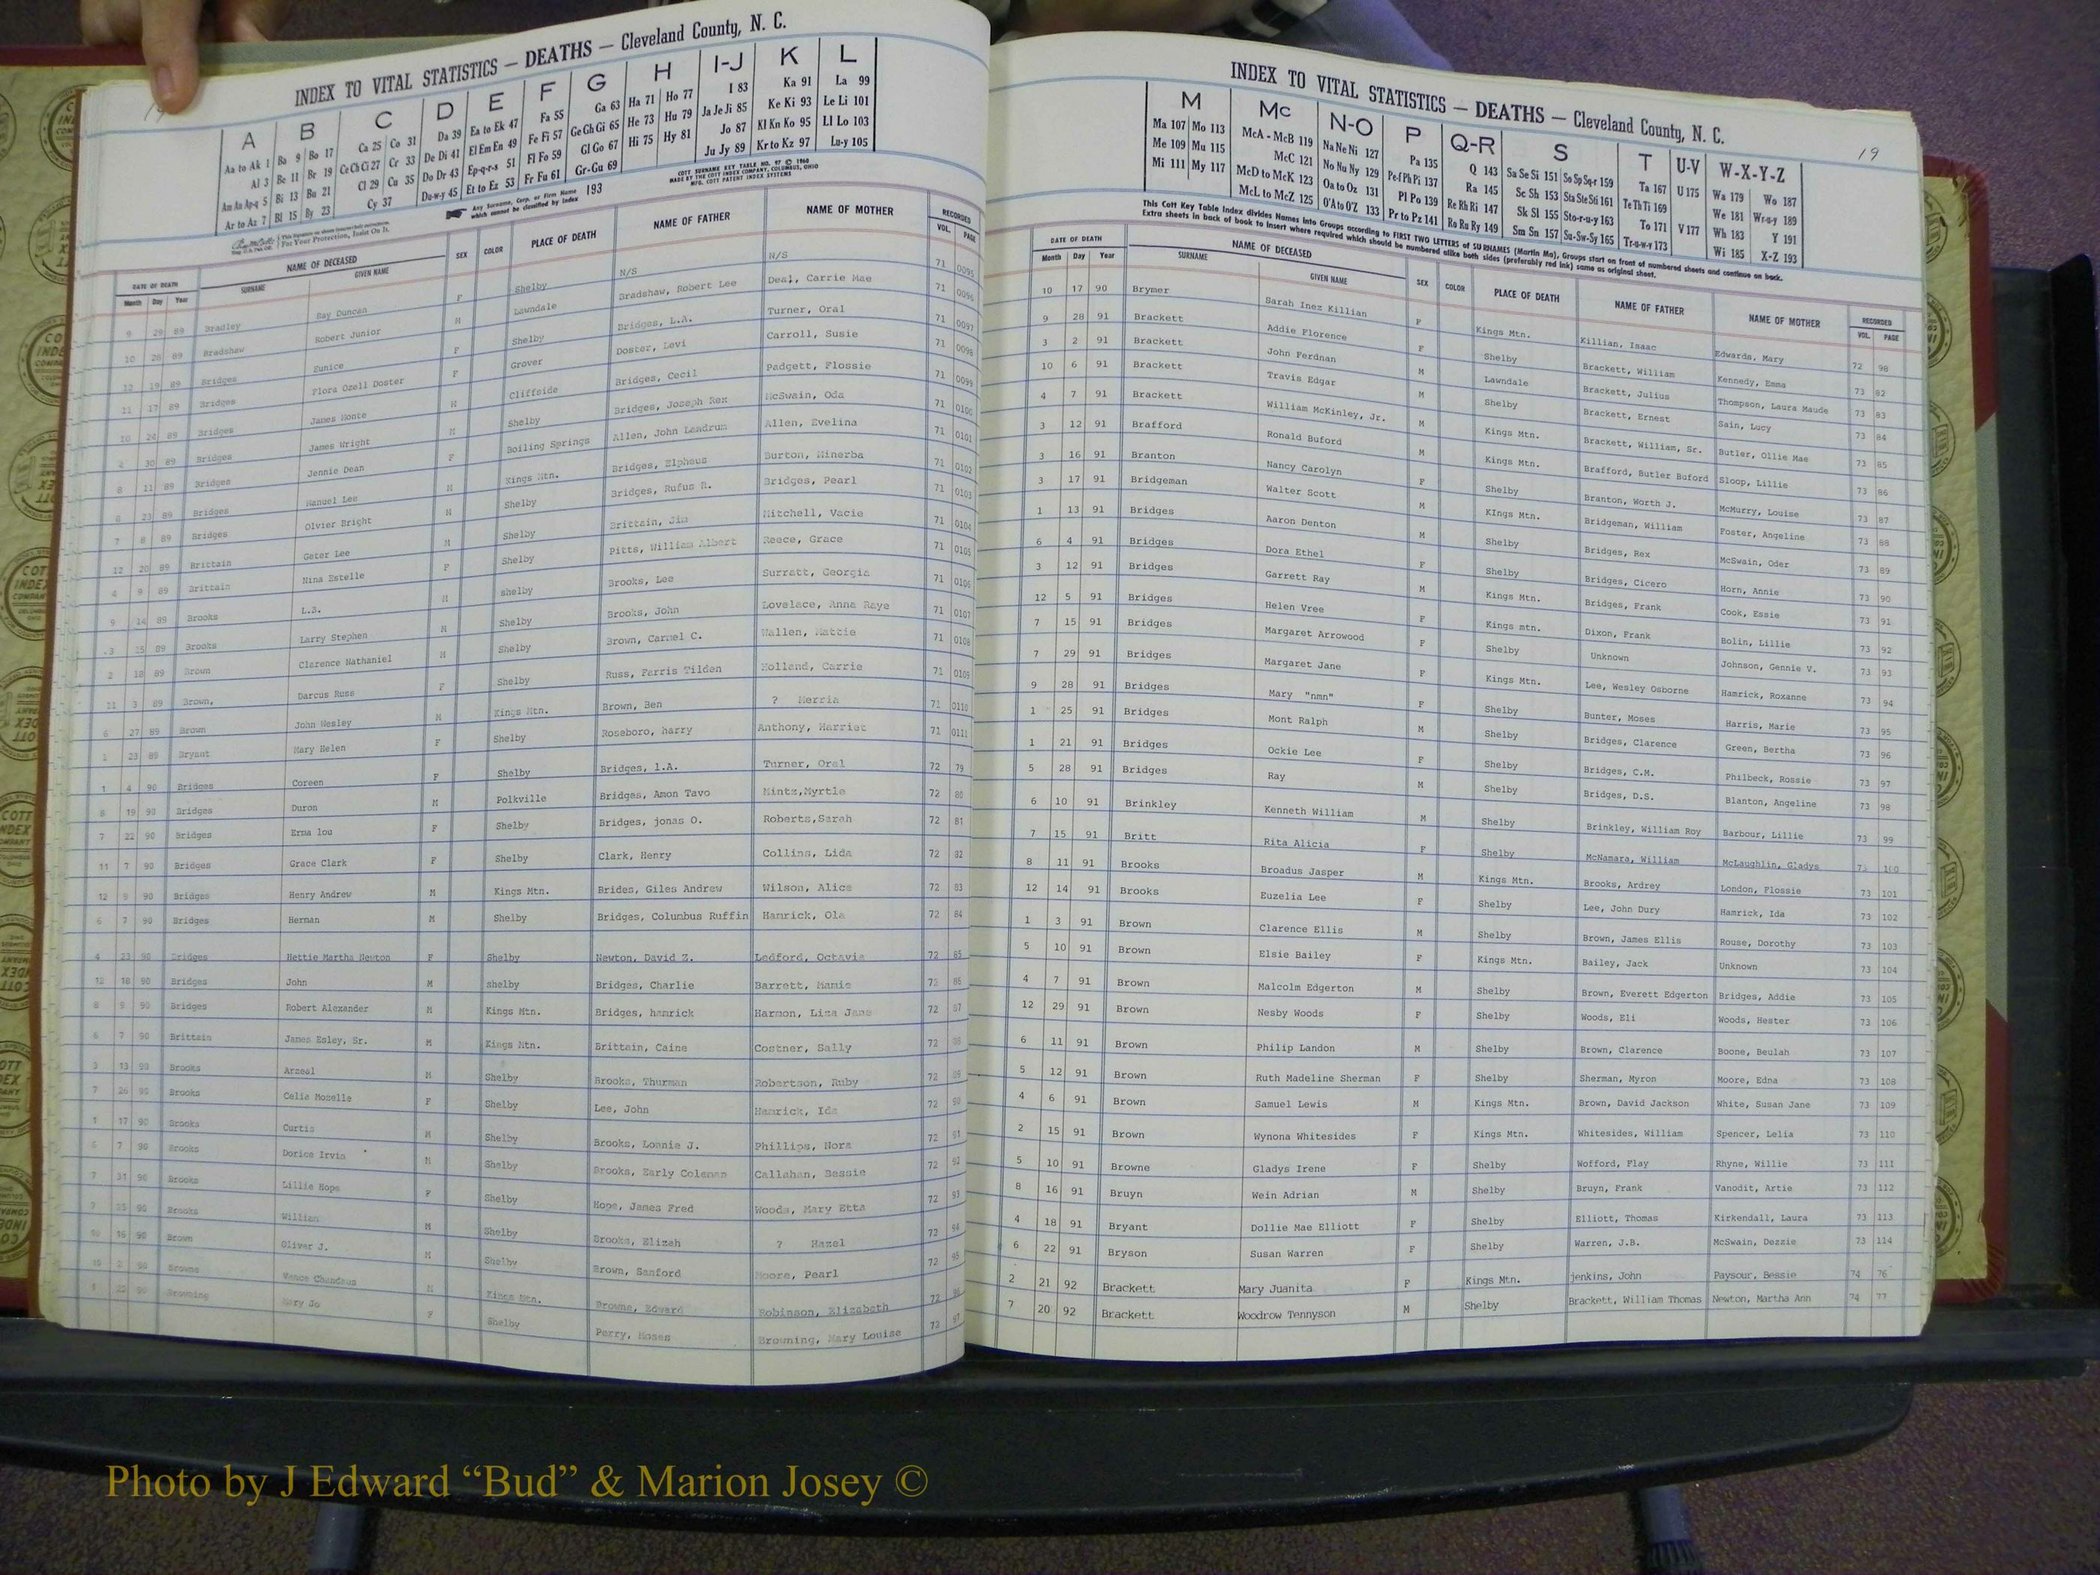 INDEX TO VITAL STATISTICS — DEATHS — Cleveland County, N. C.
A B C D E F G H I-J K L
Aa to Ak 1 Ba 9 Bo 17 Ca 25 Co 31 Da 39 Ea to Ek 47 Fa 55 Ga 63 Ha 71 Ho 77 I 83 Ka 91 La 99
Al 3 Be 11 Br 19 Ce Ch Ci 27 Cr 33 De Di 41 El Em En 49 Fe Fi 57 Ge Gh Gi 65 He 73 Hu 79 Ja Je Ji 85 Ke Ki 93 Le Li 101
Am An Ap-q 5 Bi 13 Bu 21 Cl 29 Cu 35 Do Dr 43 Ep-q-r-s 51 Fl Fo 59 Gl Go 67 Hi 75 Hy 81 Jo 87 Kl Kn Ko 95 Ll Lo 103
Ar to Az 7 Bl 15 By 23 Cy 37 Du-w-y 45 Et to Ez 53 Fr Fu 61 Gr-Gu 69 Ju Jy 89 Kr to Kz 97 Lu-y 105
Any Surname, Corp. or Firm Name which cannot be classified by index 193
COTT SURNAME KEY TABLE NO. 97 © 1960
MADE BY THE COTT INDEX COMPANY, COLUMBUS, OHIO
MFG. COTT PATENT INDEX SYSTEMS
For Your Protection, Insist On It.
DATE OF DEATH NAME OF DECEASED SEX COLOR PLACE OF DEATH NAME OF FATHER NAME OF MOTHER RECORDED
Month Day Year SURNAME GIVEN NAME VOL. PAGE
9 29 89 Bradley Ray Duncan F Shelby N/S N/S 71 0095
10 28 89 Bradshaw Robert Junior M Lawndale Bradshaw, Robert Lee Deal, Carrie Mae 71 0096
12 19 89 Bridges Eunice F Shelby Bridges, L.A. Turner, Oral 71 0097
11 17 89 Bridges Flora Ozell Doster F Grover Doster, Levi Carroll, Susie 71 0098
10 24 89 Bridges James Monte M Cliffside Bridges, Cecil Padgett, Flossie 71 0099
2 30 89 Bridges James Wright M Shelby Bridges, Joseph Rex McSwain, Oda 71 0100
8 11 89 Bridges Jennie Dean F Boiling Springs Allen, John Landrum Allen, Evelina 71 0101
8 23 89 Bridges Manuel Lee M Kings Mtn. Bridges, Elpheus Burton, Minerba 71 0102
7 8 89 Bridges Olvier Bright M Shelby Bridges, Rufus R. Bridges, Pearl 71 0103
12 20 89 Brittain Geter Lee M Shelby Brittain, Jim Mitchell, Vacie 71 0104
4 9 89 Brittain Nina Estelle F Shelby Pitts, William Albert Reece, Grace 71 0105
9 14 89 Brooks L.B. M shelby Brooks, Lee Surratt, Georgia 71 0106
3 15 89 Brooks Larry Stephen M Shelby Brooks, John Lovelace, Anna Raye 71 0107
2 18 89 Brown Clarence Nathaniel M Shelby Brown, Carmel C. Wallen, Mattie 71 0108
11 3 89 Brown, Darcus Russ F Shelby Russ, Farris Tilden Holland, Carrie 71 0109
6 27 89 Brown John Wesley M Kings Mtn. Brown, Ben ? Merria 71 0110
1 23 89 Bryant Mary Helen F Shelby Roseboro, harry Anthony, Harriet 71 0111
1 4 90 Bridges Coreen F Shelby Bridges, l.A. Turner, Oral 72 79
8 19 90 Bridges Duron M Polkville Bridges, Amon Tavo Mintz,Myrtle 72 80
7 22 90 Bridges Erma lou F Shelby Bridges, jonas O. Roberts,Sarah 72 81
11 7 90 Bridges Grace Clark F Shelby Clark, Henry Collins, Lida 72 82
12 9 90 Bridges Henry Andrew M Kings Mtn. Brides, Giles Andrew Wilson, Alice 72 83
6 7 90 Bridges Herman M Shelby Bridges, Columbus Ruffin Hamrick, Ola 72 84
4 23 90 Bridges Hettie Martha Newton F Shelby Newton, David Z. Ledford, Octavia 72 85
12 18 90 Bridges John M shelby Bridges, Charlie Barrett, Mamie 72 86
8 9 90 Bridges Robert Alexander M Kings Mtn. Bridges, hamrick Harmon, Liza Jane 72 87
6 7 90 Brittain James Esley, Sr. M Kings Mtn. Brittain, Caine Costner, Sally 72 88
3 13 90 Brooks Arzeal M Shelby Brooks, Thurman Robertson, Ruby 72 89
7 26 90 Brooks Celia Mozelle F Shelby Lee, John Hamrick, Ida 72 90
1 17 90 Brooks Curtis M Shelby Brooks, Lonnie J. Phillips, Nora 72 91
6 7 90 Brooks Dorice Irvin M Shelby Brooks, Early Coleman Callahan, Bessie 72 92
7 31 90 Brooks Lillie Hope F Shelby Hope, James Fred Woods, Mary Etta 72 93
15 90 Brooks William M Shelby Brooks, Elizah ? Hazel 72 94
16 90 Brown Oliver J. M Shelby Brown, Sanford Moore, Pearl 72 95
10 2 90 Browne Vance Chandeus M Kings Mtn. Browne, Edward Robinson, Elizabeth 72 96
4 22 90 Browning Mary Jo F Shelby Perry, Moses Browning, Mary Louise 72 97
INDEX TO VITAL STATISTICS — DEATHS — Cleveland County, N. C.
19
M Mc N-O P Q-R S T U-V W-X-Y-Z
Ma 107 Mo 113 McA - McB 119 Na Ne Ni 127 Pa 135 Q 143 Sa Se Si 151 So Sp Sq-r 159 Ta 167 U 175 Wa 179 Wo 187
Me 109 Mu 115 McC 121 No Nu Ny 129 Pe-f Ph Pi 137 Ra 145 Sc Sh 153 Sta Ste Sti 161 Te Th Ti 169 We 181 Wr-u-y 189
Mi 111 My 117 McD to McK 123 Oa to Oz 131 Pl Po 139 Re Rh Ri 147 Sk Sl 155 Sto-r-u-y 163 To 171 V 177 Wh 183 Y 191
McL to McZ 125 O'A to O'Z 133 Pr to Pz 141 Ro Ru Ry 149 Sm Sn 157 Su-Sw-Sy 165 Tr-u-w-y 173 Wi 185 X-Z 193
This Cott Key Table Index divides Names into Groups according to FIRST TWO LETTERS of SURNAMES (Martin Ma), Groups start on front of numbered sheets and continue on back.
Extra sheets in back of book to insert where required which should be numbered alike both sides (preferably red ink) same as original sheet.
DATE OF DEATH NAME OF DECEASED SEX COLOR PLACE OF DEATH NAME OF FATHER NAME OF MOTHER RECORDED
Month Day Year SURNAME GIVEN NAME VOL. PAGE
10 17 90 Brymer Sarah Inez Killian F Kings Mtn. Killian, Isaac Edwards, Mary 72 98
9 28 91 Brackett Addie Florence F Shelby Brackett, William Kennedy, Emma 73 82
3 2 91 Brackett John Ferdnan M Lawndale Brackett, Julius Thompson, Laura Maude 73 83
10 6 91 Brackett Travis Edgar M Shelby Brackett, Ernest Sain, Lucy 73 84
4 7 91 Brackett William McKinley, Jr. M Kings Mtn. Brackett, William, Sr. Butler, Ollie Mae 73 85
3 12 91 Brafford Ronald Buford M Kings Mtn. Brafford, Butler Buford Sloop, Lillie 73 86
3 16 91 Branton Nancy Carolyn F Shelby Branton, Worth J. McMurry, Louise 73 87
3 17 91 Bridgeman Walter Scott M KIngs Mtn. Bridgeman, William Foster, Angeline 73 88
1 13 91 Bridges Aaron Denton M Shelby Bridges, Rex McSwain, Oder 73 89
6 4 91 Bridges Dora Ethel F Shelby Bridges, Cicero Horn, Annie 73 90
3 12 91 Bridges Garrett Ray M Kings Mtn. Bridges, Frank Cook, Essie 73 91
12 5 91 Bridges Helen Vree F Kings mtn. Dixon, Frank Bolin, Lillie 73 92
7 15 91 Bridges Margaret Arrowood F Shelby Unknown Johnson, Gennie V. 73 93
7 29 91 Bridges Margaret Jane F Kings Mtn. Lee, Wesley Osborne Hamrick, Roxanne 73 94
9 28 91 Bridges Mary "nmn" F Shelby Bunter, Moses Harris, Marie 73 95
1 25 91 Bridges Mont Ralph M Shelby Bridges, Clarence Green, Bertha 73 96
1 21 91 Bridges Ockie Lee F Shelby Bridges, C.M. Philbeck, Rossie 73 97
5 28 91 Bridges Ray M Shelby Bridges, D.S. Blanton, Angeline 73 98
6 10 91 Brinkley Kenneth William M Shelby Brinkley, William Roy Barbour, Lillie 73 99
7 15 91 Britt Rita Alicia F Shelby McNamara, William McLaughlin, Gladys 73 100
8 11 91 Brooks Broadus Jasper M Kings Mtn. Brooks, Ardrey London, Flossie 73 101
12 14 91 Brooks Euzelia Lee F Shelby Lee, John Dury Hamrick, Ida 73 102
1 3 91 Brown Clarence Ellis M Shelby Brown, James Ellis Rouse, Dorothy 73 103
5 10 91 Brown Elsie Bailey F Kings Mtn. Bailey, Jack Unknown 73 104
4 7 91 Brown Malcolm Edgerton M Shelby Brown, Everett Edgerton Bridges, Addie 73 105
12 29 91 Brown Nesby Woods F Shelby Woods, Eli Woods, Hester 73 106
6 11 91 Brown Philip Landon M Shelby Brown, Clarence Boone, Beulah 73 107
5 12 91 Brown Ruth Madeline Sherman F Shelby Sherman, Myron Moore, Edna 73 108
4 6 91 Brown Samuel Lewis M Kings Mtn. Brown, David Jackson White, Susan Jane 73 109
2 15 91 Brown Wynona Whitesides F Kings Mtn. Whitesides, William Spencer, Lelia 73 110
5 10 91 Browne Gladys Irene F Shelby Wofford, Flay Rhyne, Willie 73 111
8 16 91 Bruyn Wein Adrian M Shelby Bruyn, Frank Vanodit, Artie 73 112
4 18 91 Bryant Dollie Mae Elliott F Shelby Elliott, Thomas Kirkendall, Laura 73 113
6 22 91 Bryson Susan Warren F Shelby Warren, J.B. McSwain, Dezzie 73 114
2 21 92 Brackett Mary Juanita F Kings Mtn. jenkins, John Paysour, Bessie 74 76
7 20 92 Brackett Woodrow Tennyson M Shelby Brackett, William Thomas Newton, Martha Ann 74 77
Photo by J Edward “Bud” & Marion Josey ©